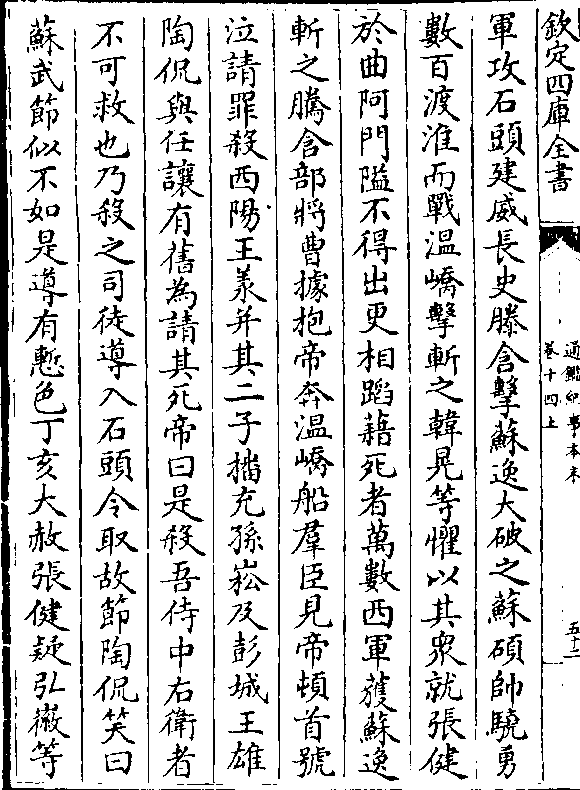 欽定四庫全書
通鑑紀事本末
卷十四上
五十二
軍攻石頭建威長史滕含擊蘇逸大破之蘇碩帥驍勇
數百渡淮而戰温嶠擊斬之韓晃等懼以其衆就張健
於曲阿門隘不得出更相蹈藉死者萬數西軍獲蘇逸
斬之騰含部將曹據抱帝奔温嶠船羣臣見帝頓首號
泣請罪殺西陽王羕并其二子播充孫崧及彭城王雄
陶侃與任讓有舊為請其死帝曰是殺吾侍中右衛者
不可救也乃殺之司徒導入石頭令取故節陶侃笑曰
蘇武節似不如是導有慙色丁亥大赦張健疑弘徽等